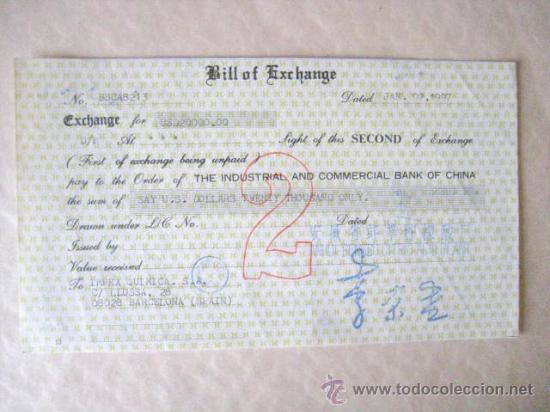 Bill of Exchange
No. Dated JAN. 1997
Exchange for USD20000.00
D/P At * * * Sight of this SECOND of Exchange
( First of exchange being unpaid )
pay to the Order of THE INDUSTRIAL AND COMMERCIAL BANK OF CHINA
the sum of SAY U.S. DOLLARS TWENTY THOUSAND ONLY.
2
Drawn under L/C No. Dated
Issued by
Value received
To QUIMICA, S.A.
C/ LLUSSA, 28
08028 BARCELONA (SPAIN)
todocoleccion
www.todocoleccion.net